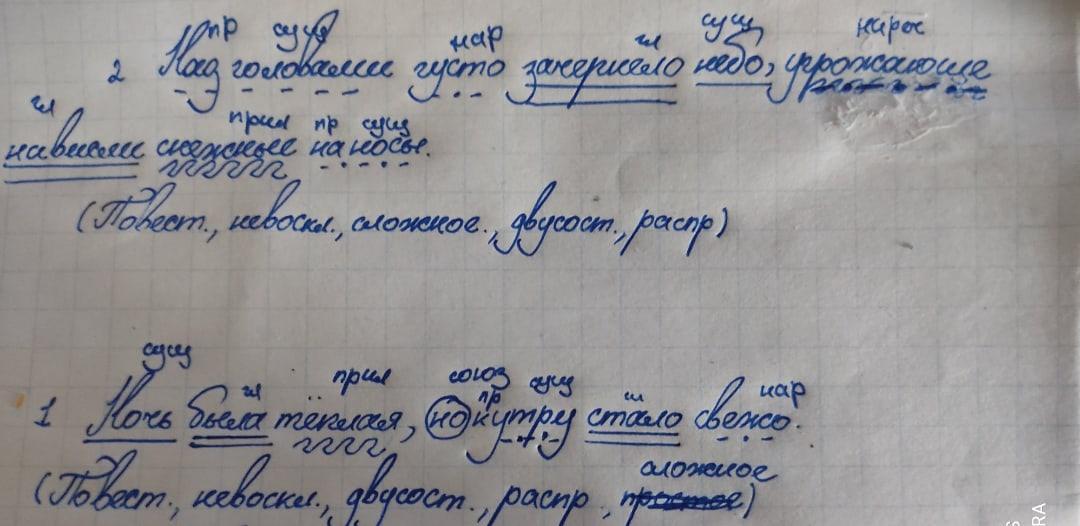 пр сущ нар гл сущ нареч
2 Над головами густо зачернело небо, угрожающе
гл прил пр сущ
нависли снежные наносы.
(Повест., невоскл., сложное., двусост., распр)
сущ гл прил союз пр сущ гл нар
1 Ночь была тёплая, но к утру стало свежо.
сложное
(Повест., невоскл., двусост., распр,